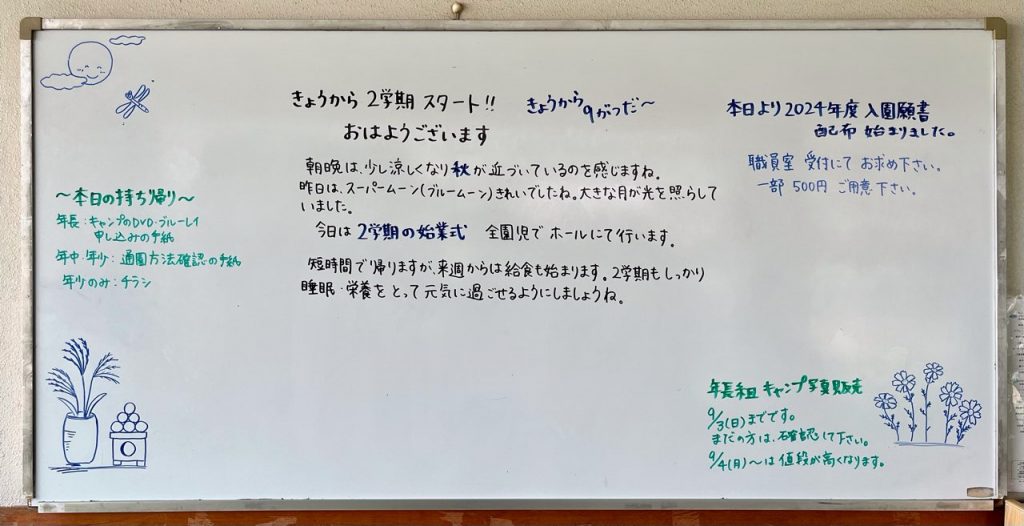 きょうから 2学期 スタート!!
きょうから9がつだ〜
おはようございます
朝晩は、少し涼しくなり秋が近づいているのを感じますね。
昨日は、スーパームーン(ブルームーン)きれいでしたね。大きな月が光を照らして
いました。
今日は 2学期の始業式 全園児で ホールにて行います。
短時間で帰りますが、来週からは給食も始まります。2学期もしっかり
睡眠・栄養をとって元気に過ごせるようにしましょうね。
〜本日の持ち帰り〜
年長:キャンプのDVD・ブルーレイ
申し込みの手紙
年中・年少:通園方法確認の手紙
年少のみ:チラシ
本日より2024年度 入園願書
配布 始まりました。
職員室 受付にて お求め下さい。
一部 500円 ご用意下さい。
年長組 キャンプ写真販売
9/3(日)までです。
まだの方は、確認して下さい。
9/4(月)〜は値段が高くなります。